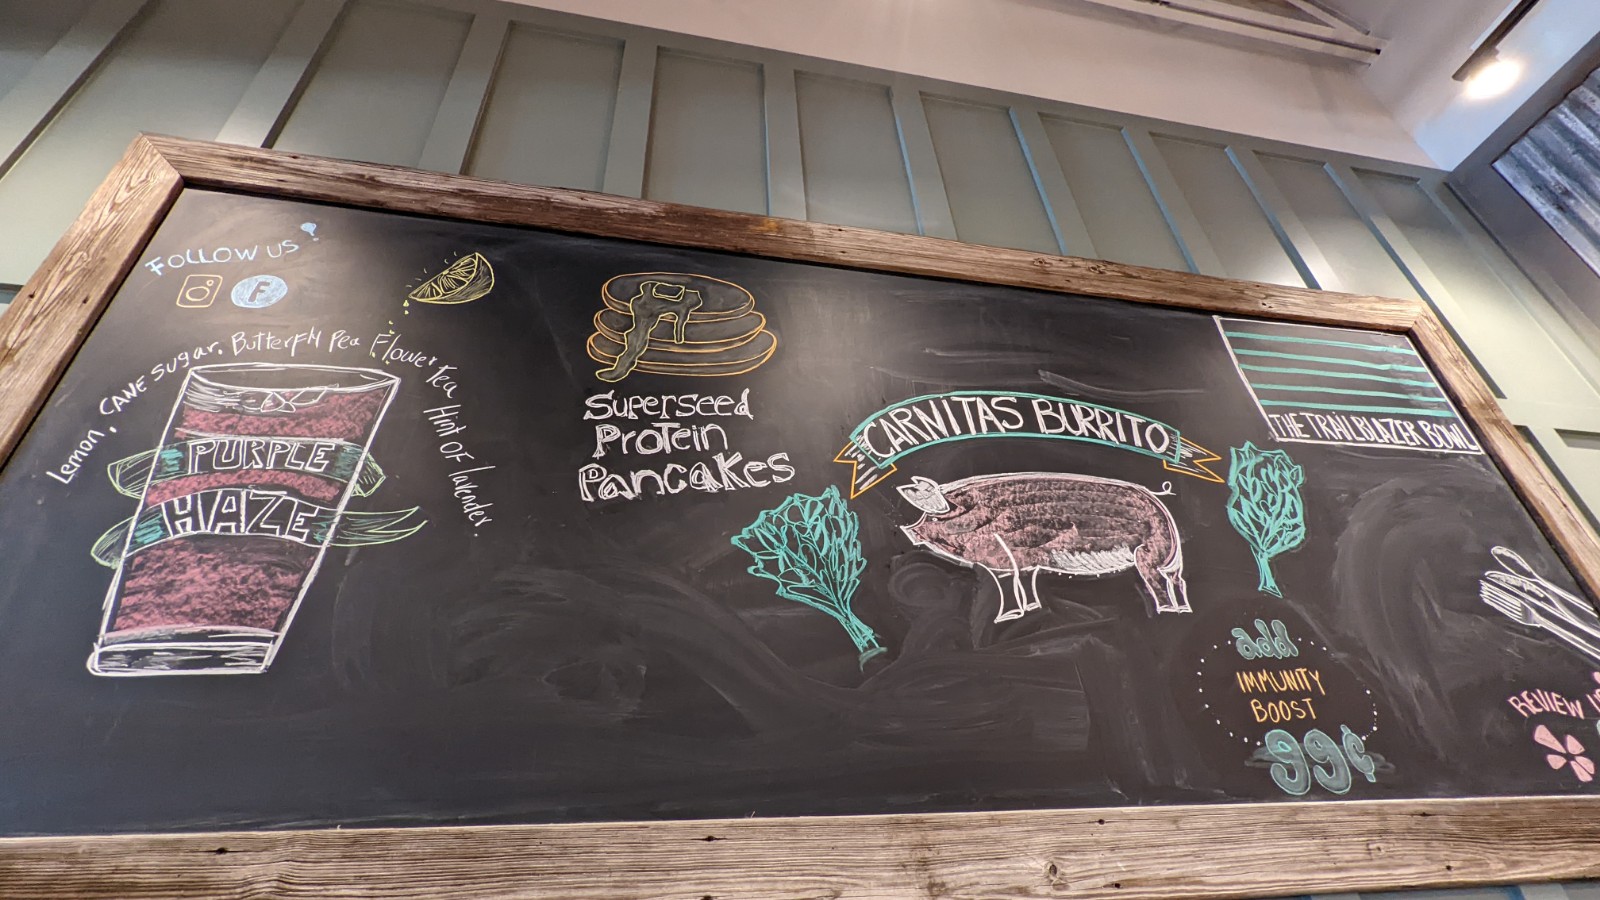 FOLLOW US!
F
Lemon, CANE Sugar, Butterfly Pea Flower Tea Hint OF lavender.
PURPLE
HAZE
Superseed
Protein
Pancakes
CARNITAS BURRITO
THE TRAILBLAZER BOWL
add
IMMUNITY
BOOST
99¢
REVIEW